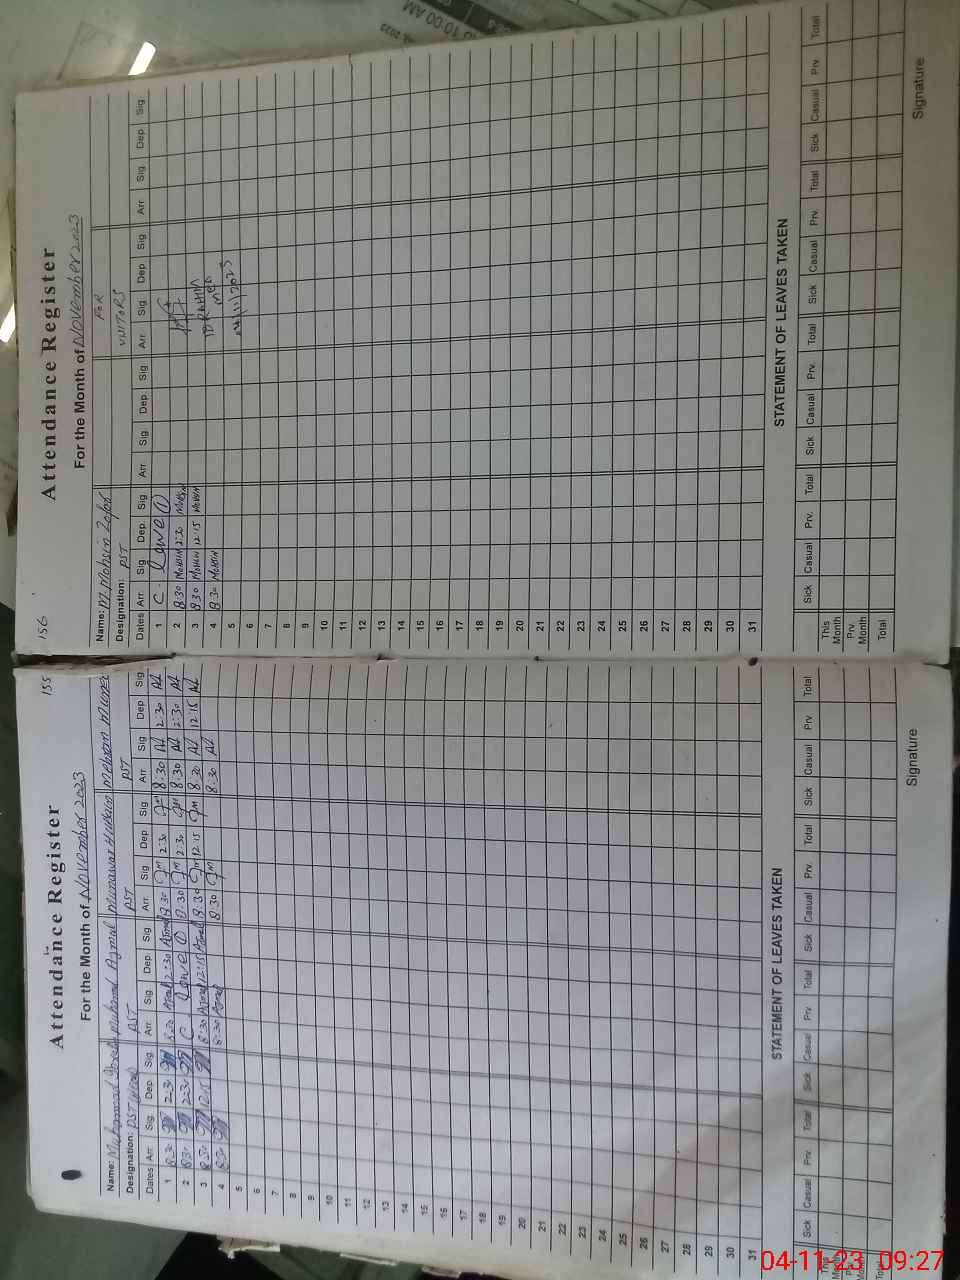 155
Attendance Register
For the Month of November 2023
Name: Muhammad Muhamad Ajmal Munawar Hussain Mehram Muneer
Designation: PST PST PST PST
Dates Arr. Sig. Dep. Sig. Arr. Sig. Dep. Sig Arr. Sig Dep. Sig Arr Sig Dep Sig
1 8:30 2:30 8:30 Ajmal 2:30 Ajmal 8:30 2:30 8:30 2:30
2 8:30 2:30 C. Leave ① 8:30 2:30 8:30 2:30
3 8:30 12:15 8:30 Ajmal 12:15 Ajmal 8:30 12:15 8:30 12:15
4 8:30 8:30 Ajmal 8:30 8:30
5
6
7
8
9
10
11
12
13
14
15
16
17
18
19
20
21
22
23
24
25
26
27
28
29
30
31
STATEMENT OF LEAVES TAKEN
Sick Casual Prv. Total Sick Casual Prv Total Sick Casual Prv. Total Sick Casual Prv Total
This Month
Prv. Month
Total
Signature
156
Attendance Register
For the Month of November 2023
Name: M. Mohsin Zafar FOR
Designation: PST VISITORS
Dates Arr. Sig. Dep. Sig Arr. Sig Dep. Sig Arr. Sig Dep. Sig Arr. Sig Dep. Sig
1 C. Leave ①
2 8:30 MOHSIN 2:30 MOHSIN
3 8:30 MOHSIN 12:15 MOHSIN IBRAHIM
4 8:30 MOHSIN MEA
5 04/11/2023
6
7
8
9
10
11
12
13
14
15
16
17
18
19
20
21
22
23
24
25
26
27
28
29
30
31
STATEMENT OF LEAVES TAKEN
Sick Casual Prv. Total Sick Casual Prv. Total Sick Casual Prv. Total Sick Casual Prv. Total
This Month
Prv. Month
Total
Signature
10:00 AM
04-11-23 09:27